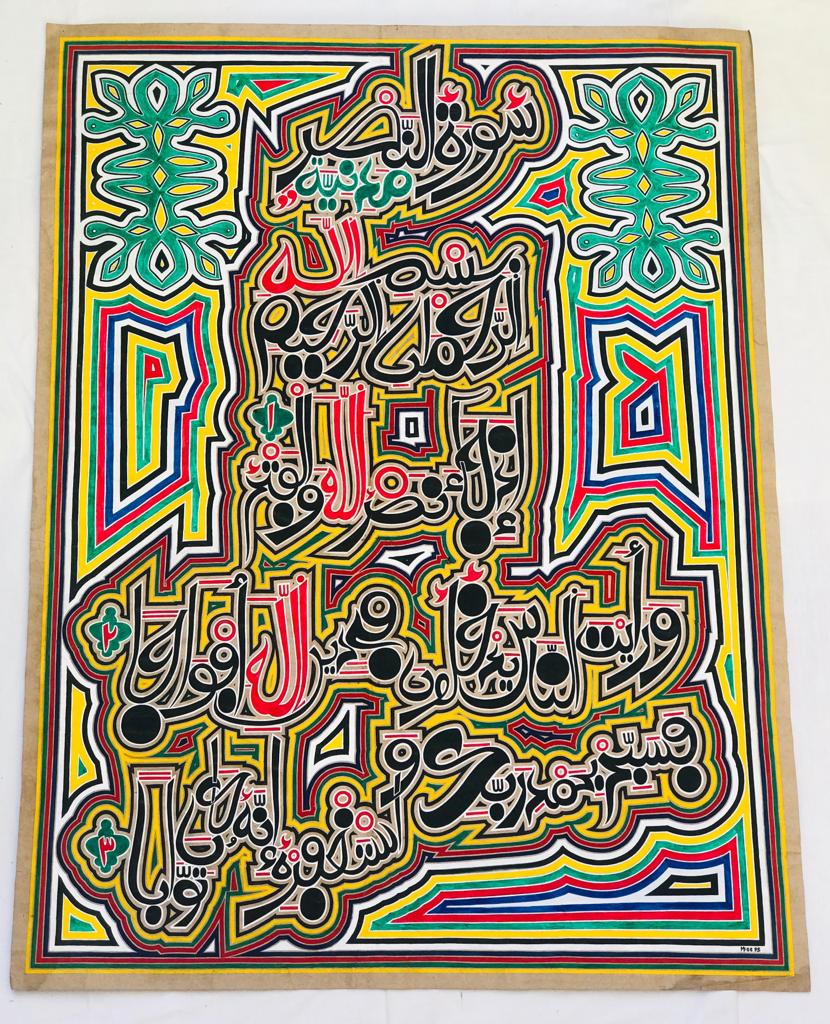 سُورَةُ النَّصْرِ
مَدَنِيَّة
بِسْمِ اللَّهِ
الرَّحْمٰنِ الرَّحِيمِ
إِذَا جَاءَ نَصْرُ اللَّهِ وَالْفَتْحُ ١
وَرَأَيْتَ النَّاسَ يَدْخُلُونَ فِي دِينِ اللَّهِ أَفْوَاجًا ٢
فَسَبِّحْ بِحَمْدِ رَبِّكَ وَاسْتَغْفِرْهُ إِنَّهُ كَانَ تَوَّابًا ٣